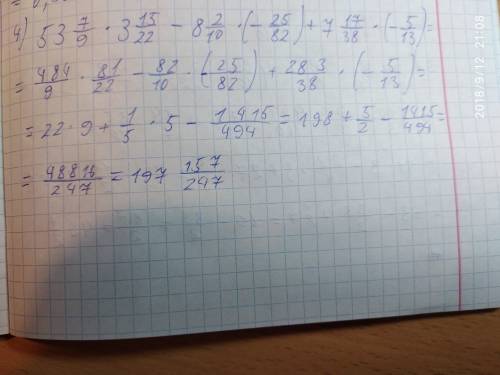 4) 53 7/9 · 3 15/22 − 8 2/10 · (− 25/82) + 7 17/38 · (− 5/13) =
= 484/9 · 81/22 − 82/10 · (− 25/82) + 283/38 · (− 5/13) =
= 22 · 9 + 1/5 · 5 − 1415/494 = 198 + 5/2 − 1415/494 =
= 48816/247 = 197 157/247
2018/9/12 21:08